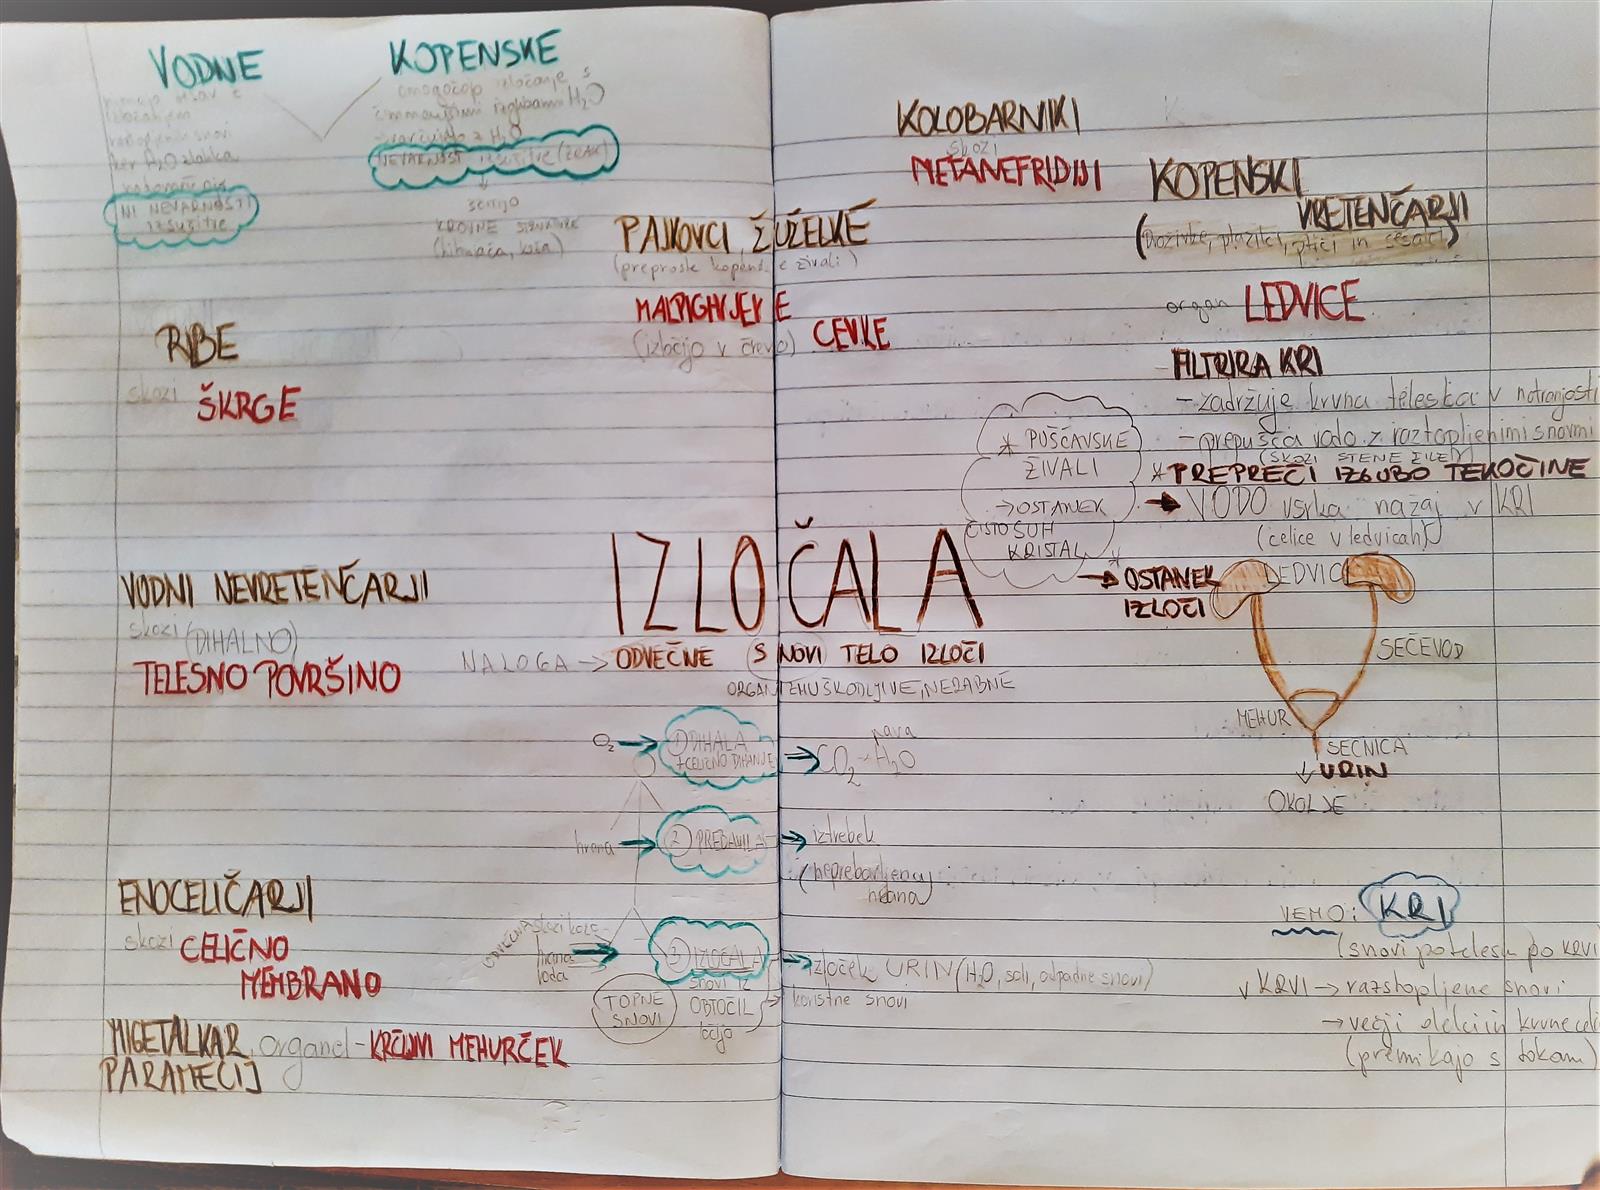 VODNE
KOPENSKE
omogočajo izločanje s
H2O
z H2O
NEVARNOST IZSUŠITVE (ZRAK)
ščitijo
KROVNE STRUKTURE
koža)
izločanjem
snovi
ker H2O zlahka
NI NEVARNOSTI
IZSUŠITVE
RIBE
skozi ŠKRGE
VODNI NEVRETENČARJI
skozi (DIHALNO)
TELESNO POVRŠINO
ENOCELIČARJI
skozi CELIČNO
MEMBRANO
MIGETALKAR organel - KRČLJIVI MEHURČEK
PARAMECIJ
PAJKOVCI ŽUŽELKE
(preproste kopenske živali)
MALPIGHIJEVE
CEVKE
(izločijo v črevo)
KOLOBARNIKI
skozi
METANEFRIDIJI
KOPENSKI
VRETENČARJI
(Dvoživke, plazilci, ptiči in sesalci)
organ LEDVICE
FILTRIRA KRI
- zadržuje krvna telesca v notranjosti
- prepušča vodo z raztopljenimi snovmi
(SKOZI STENE ŽILE)
* PREPREČI IZGUBO TEKOČINE
→ VODO vsrka nazaj v KRI
(celice v ledvicah)
* PUŠČAVSKE
ŽIVALI
→ OSTANEK
ČISTO SUH
KRISTAL
→ OSTANEK
IZLOČI
LEDVICI
SEČEVOD
MEHUR
SEČNICA
↓ URIN
OKOLJE
IZLOČALA
NALOGA → ODVEČNE SNOVI TELO IZLOČI
ORGANIZMU ŠKODLJIVE, NERABNE
O2 → 1 DIHALA
+CELIČNO DIHANJE
→ CO2 H2O
para
hrana → 2 PREBAVILA → iztrebek
(neprebavljena
hrana)
ODVEČNA
skozi kožo
hrana
voda
→ 3 IZLOČALA → izloček URIN (H2O, soli, odpadne snovi)
snovi iz
OBTOČIL
ločijo
koristne snovi
TOPNE
SNOVI
VEMO: KRI
(snovi po telesu po krvi
V KRVI → razstopljene snovi
→ večji delci in krvne celi
(premikajo s tokom)